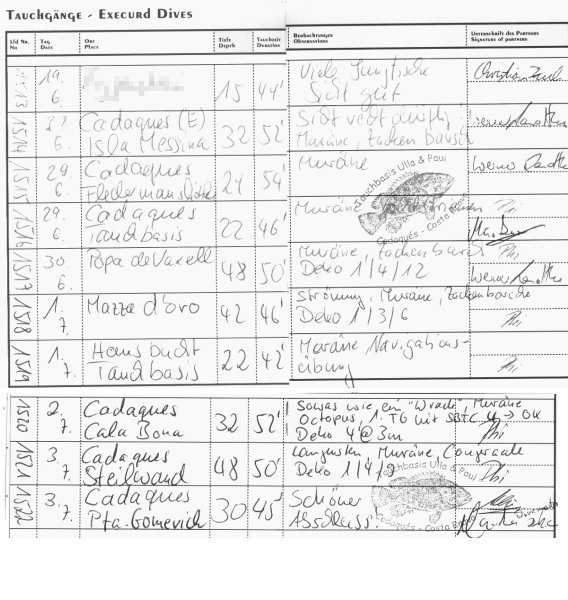 Tauchgänge - Execurd Dives
Lfd Nr. Tag Ort Tiefe Tauchzeit Beobachtungen Unterschrift des Partners
No Date Place Depth Duration Observations Signature of partners
1513 19. 6. 15 44' Viele Jungfische
Sicht gut
1514 28. 6. Cadaques (E) 32 52' Sicht recht dürftig,
Isla Messina Muräne, Zackenbarsch
1515 29. 6. Cadaques 24 54' Muräne
Fledermaushöhle
1516 29. 6. Cadaques 22 46' Muräne
Tauchbasis
Tauchbasis Ulla & Paul
Cadaqués - Costa
1517 30 6. Popa de Vaxell 48 50' Muräne, Zackenbarsch
Deko 1/4/12
1518 1. 7. Mazza d'oro 42 46' Strömung, Muräne, Zackenbarsche
Deko 1/3/6
1519 1. 7. Hans bucht 22 42' Muräne, Navigations-
Tauchbasis übung
1520 2. 7. Cadaques 32 52' Sowas wie ein "Wrack", Muräne
Cala Bona Octopus, 1. TG mit SBTC → OK
Deko 4'@3m
1521 3. 7. Cadaques 48 50' Langusten, Muräne, Congeraale
Steilwand Deko 1/4/9
1522 3. 7. Cadaques 30 45' Schöner
Pta. Gomevich Abschluss!
Tauchbasis Ulla & Paul
Cadaqués - Costa